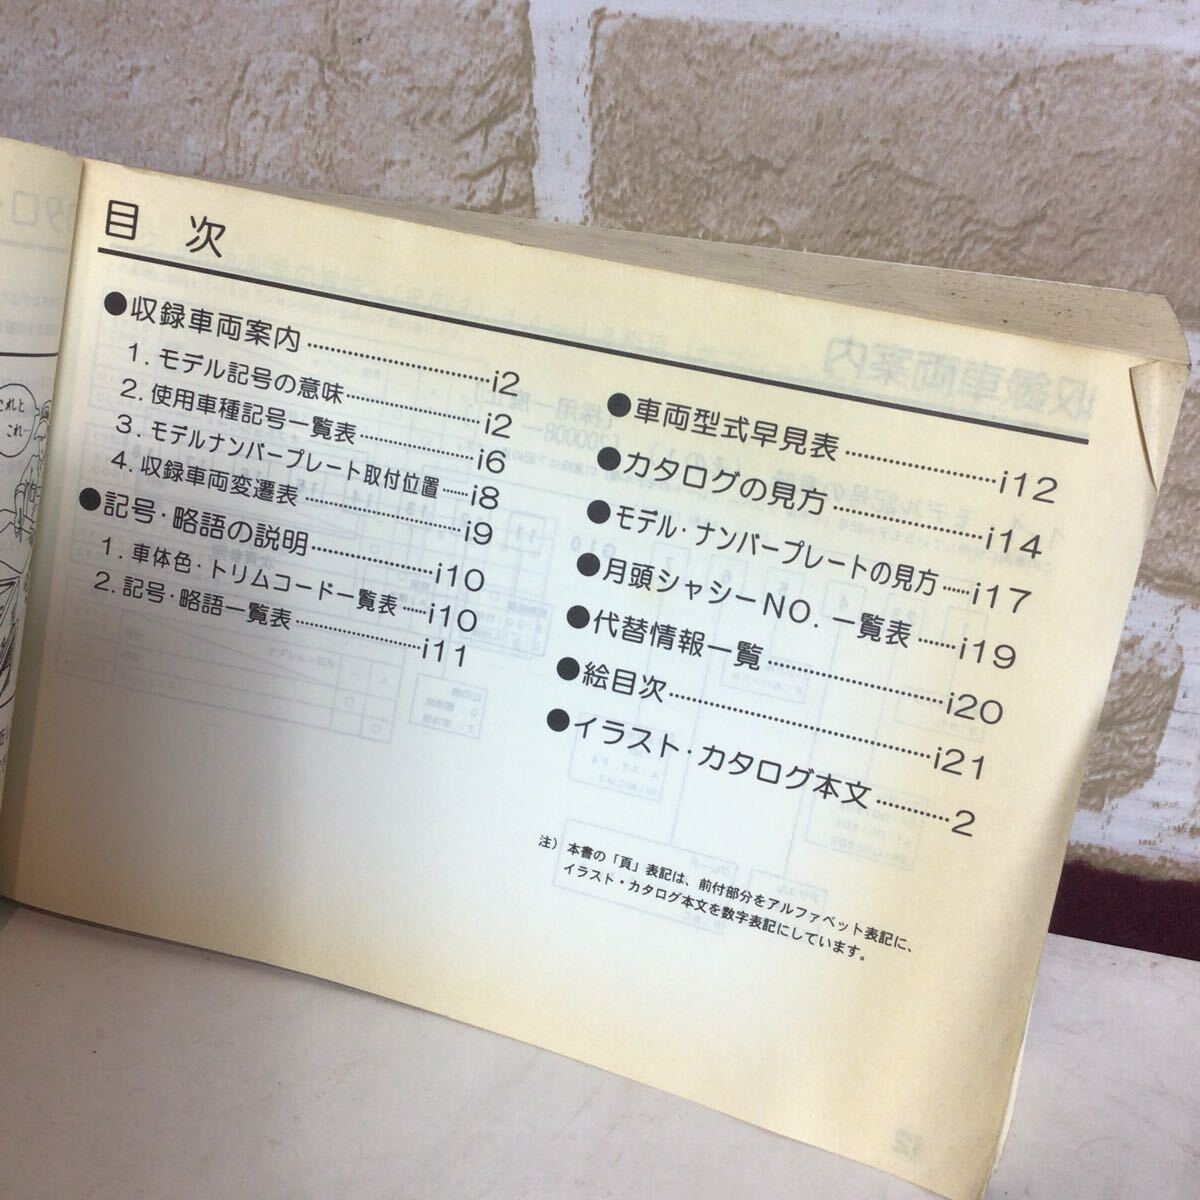 目 次
●収録車両案内……………………i2
1. モデル記号の意味………………i2
2. 使用車種記号一覧表……………i6
3. モデルナンバープレート取付位置……i8
4. 収録車両変遷表…………………i9
●記号・略語の説明…………………i10
1. 車体色・トリムコード一覧表……i10
2. 記号・略語一覧表………………i11
●車両型式早見表…………………i12
●カタログの見方…………………i14
●モデル・ナンバープレートの見方……i17
●月頭シャシーNO. 一覧表……i19
●代替情報一覧……………………i20
●絵目次……………………………i21
●イラスト・カタログ本文…………2
注) 本書の「頁」表記は、前付部分をアルファベット表記に、
イラスト・カタログ本文を数字表記にしています。
これと
これ…